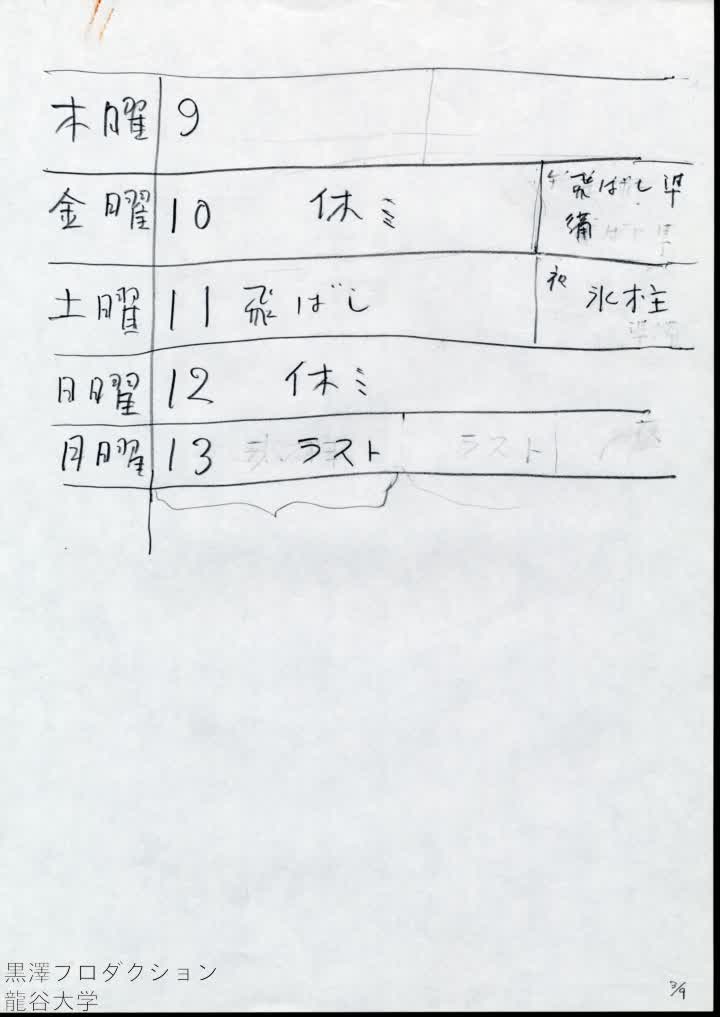 木曜 9
金曜 10 休ミ 飛ばし準
備
土曜 11 飛ばし 夜 氷柱
日曜 12 休ミ
月曜 13 ラスト ラスト
黒澤プロダクション
龍谷大学
3/9